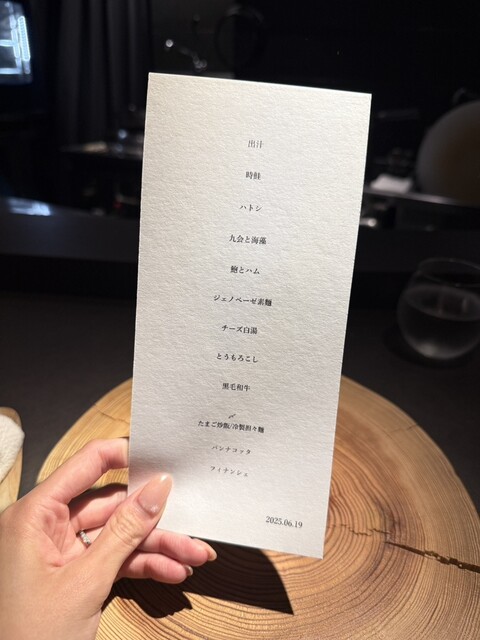 出汁
時鮭
ハトシ
九会と海藻
鮑とハム
ジェノベーゼ素麺
チーズ白湯
とうもろこし
黒毛和牛
たまご炒飯/冷製担々麺
パンナコッタ
フィナンシェ
2025.06.19